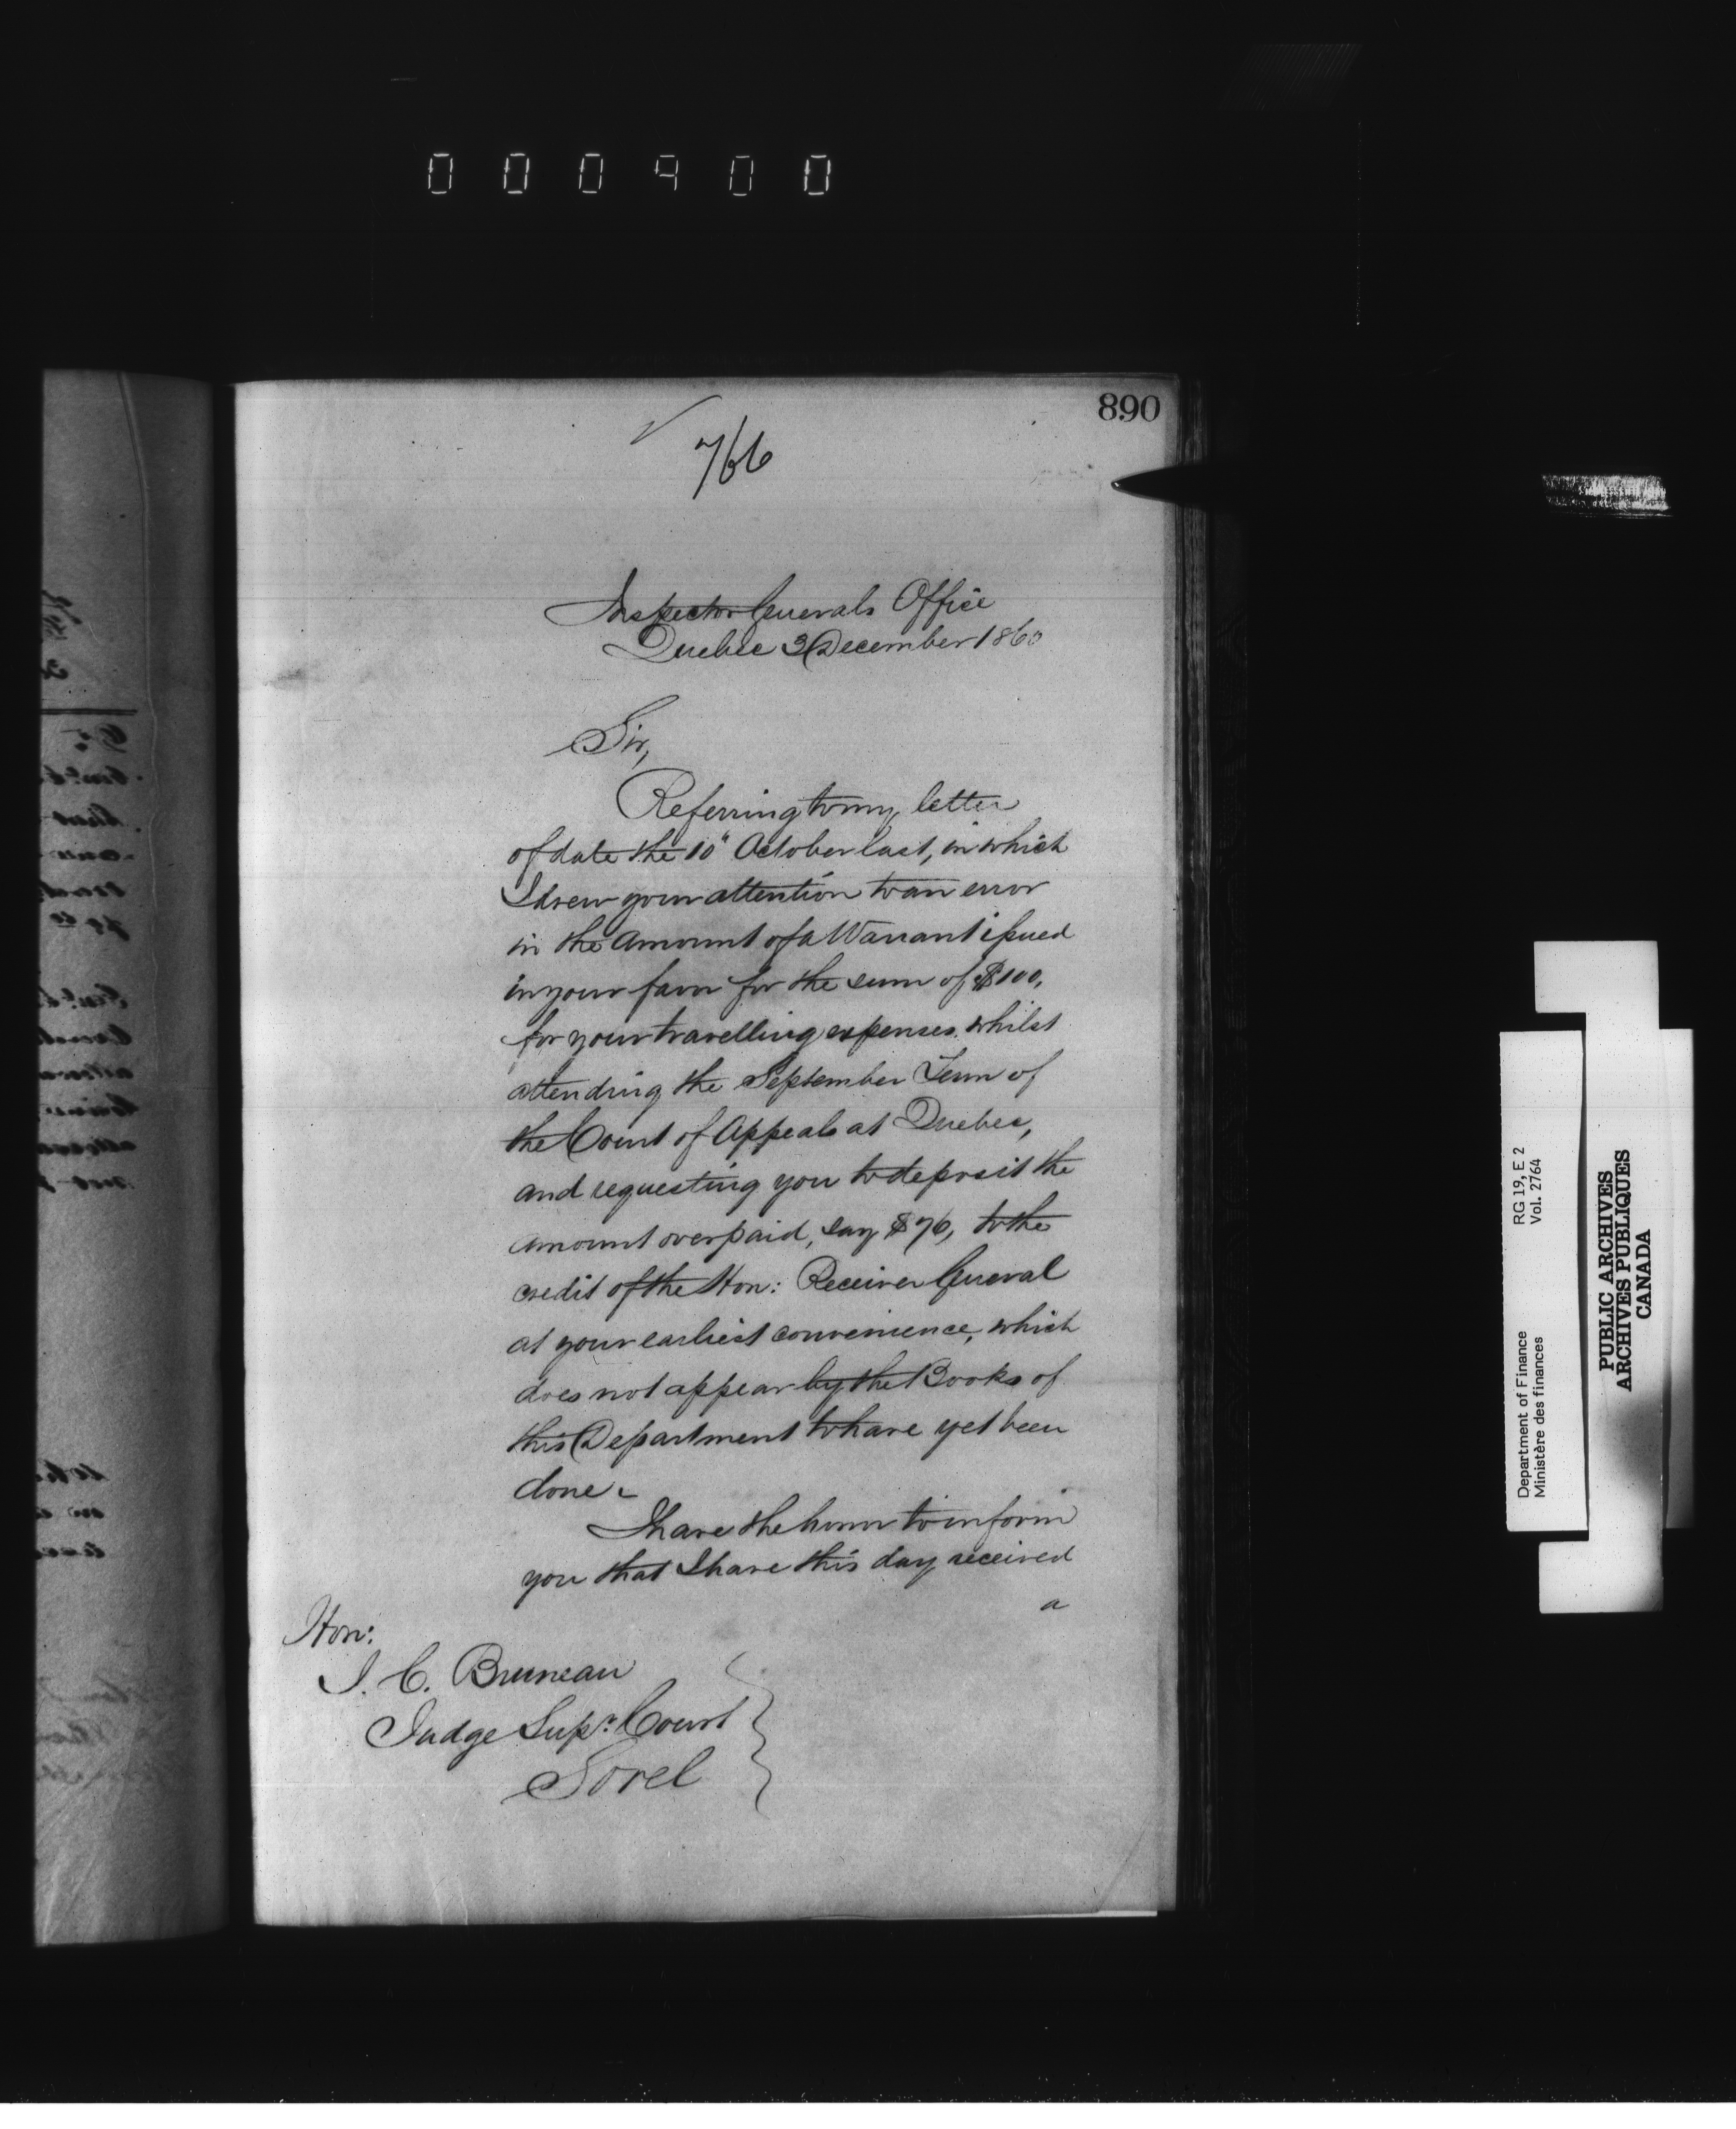 000900
890
766
Inspector Generals Office
Quebec 3 December 1860
Sir,
Referring to my letter
of date the 10" October last, in which
I drew your attention to an error
in the amount of a Warrant issued
in your favor for the sum of $100,
for your travelling expenses whilst
attending the September Term of
the Court of Appeals at Quebec,
and requesting you to deposit the
amount overpaid, say $76, to the
credit of the Hon: Receiver General
at your earliest convenience, which
does not appear by the Books of
this Department to have yet been
done.
I have the honor to inform
you that I have this day received
a
Hon:
J. C. Bruneau
Judge Supr. Court
Sorel
Department of Finance RG 19, E 2
Ministère des finances Vol. 2764
PUBLIC ARCHIVES
ARCHIVES PUBLIQUES
CANADA